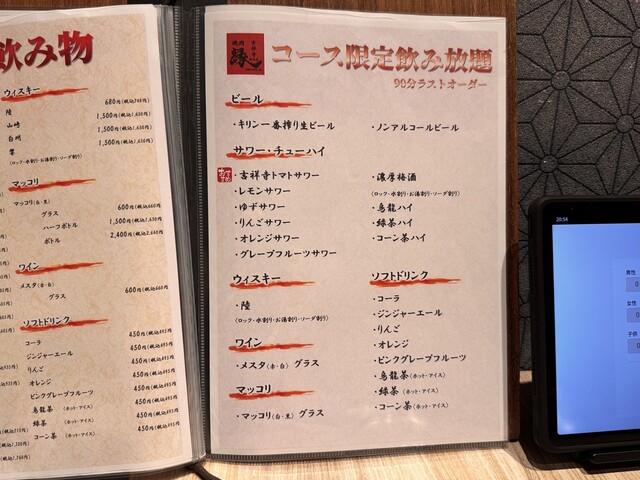 飲み物
ウィスキー
陸 680円(税込748円)
山崎 1,500円(税込1,650円)
白州 1,500円(税込1,650円)
響 1,500円(税込1,650円)
(ロック・水割り・お湯割り・ソーダ割り)
マッコリ
マッコリ(白・黒)
グラス 600円(税込660円)
ハーフボトル 1,500円(税込1,650円)
ボトル 2,400円(税込2,640円)
ワイン
メスタ(赤・白)
グラス 600円(税込660円)
ソフトドリンク
コーラ 450円(税込495円)
ジンジャーエール 450円(税込495円)
りんご 450円(税込495円)
オレンジ 450円(税込495円)
ピンクグレープフルーツ 450円(税込495円)
烏龍茶 (ホット・アイス) 450円(税込495円)
緑茶 (ホット・アイス) 450円(税込495円)
コーン茶 (ホット・アイス) 450円(税込495円)
焼肉 縁 吉祥寺
コース限定飲み放題
90分ラストオーダー
ビール
・キリン一番搾り生ビール
・ノンアルコールビール
サワー・チューハイ
・吉祥寺トマトサワー
・レモンサワー
・ゆずサワー
・りんごサワー
・オレンジサワー
・グレープフルーツサワー
・濃厚梅酒
(ロック・水割り・お湯割り・ソーダ割り)
・烏龍ハイ
・緑茶ハイ
・コーン茶ハイ
ウィスキー
・陸
(ロック・水割り・お湯割り・ソーダ割り)
ワイン
・メスタ(赤・白) グラス
マッコリ
・マッコリ(白・黒) グラス
ソフトドリンク
・コーラ
・ジンジャーエール
・りんご
・オレンジ
・ピンクグレープフルーツ
・烏龍茶(ホット・アイス)
・緑茶 (ホット・アイス)
・コーン茶 (ホット・アイス)
20:54
男性
0
女性
0
子供
0